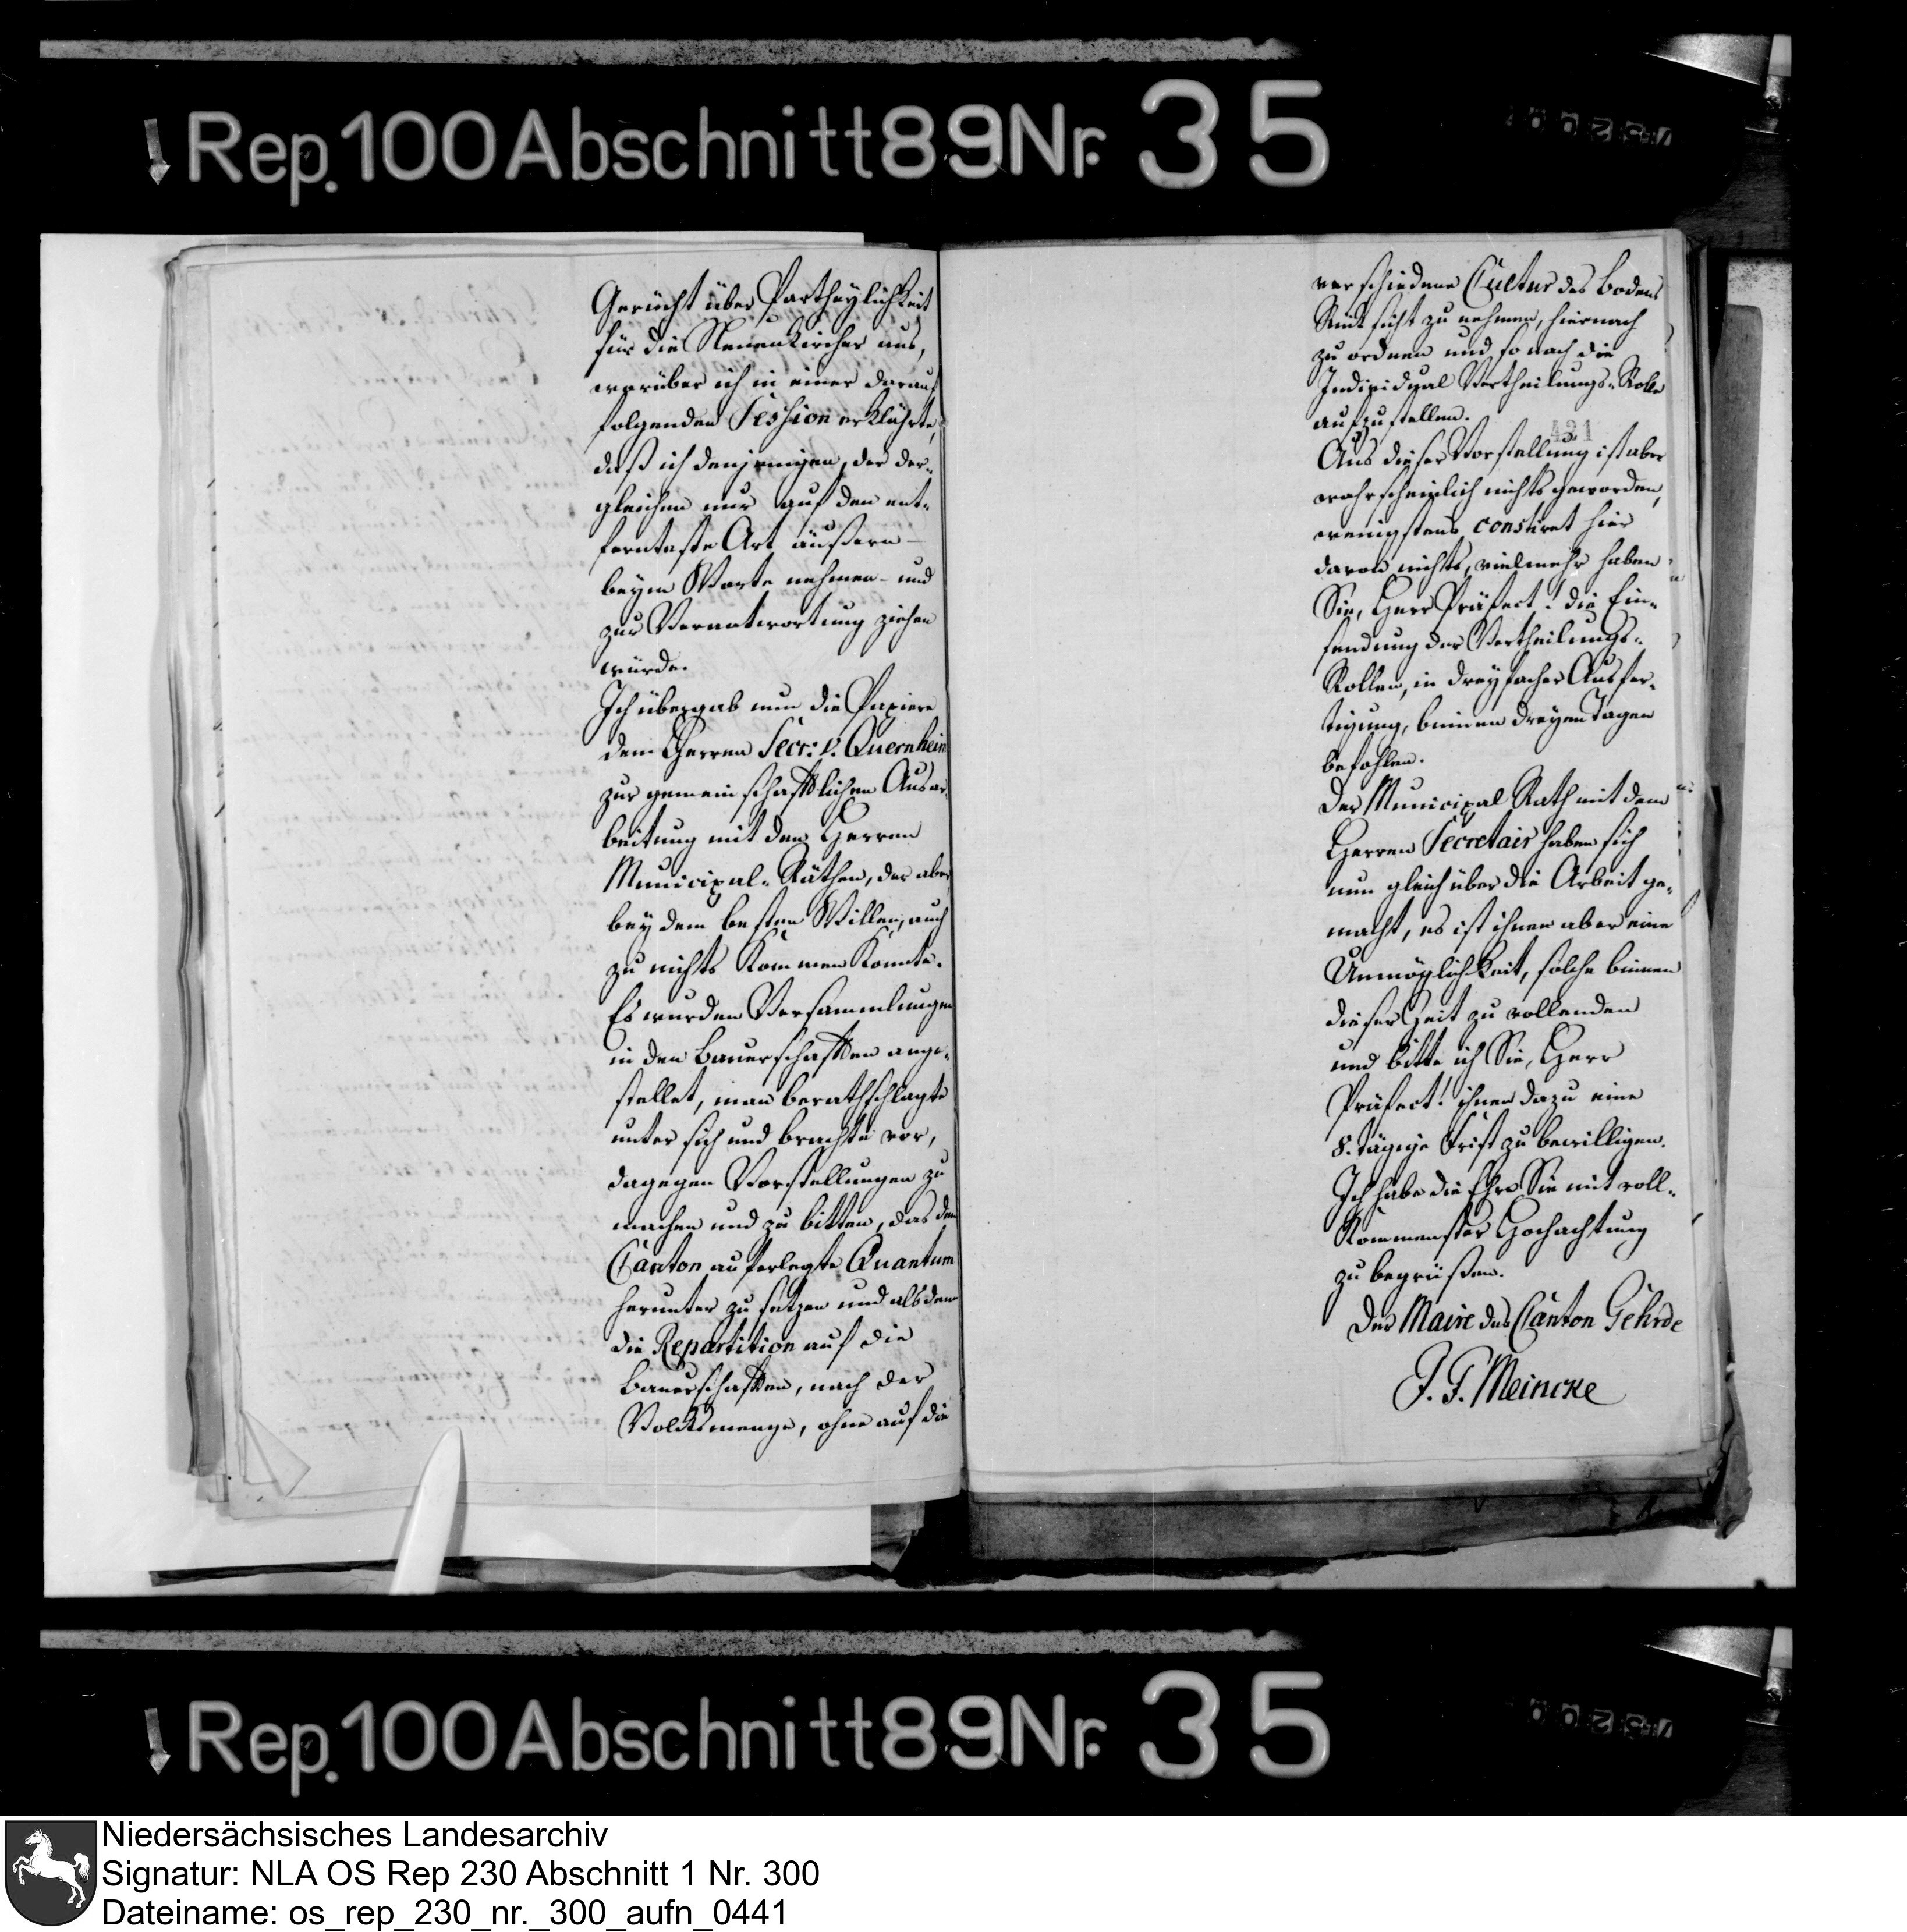 Rep. 100 Abschnitt 89 Nr. 35
Gerücht über Partheylichkeit
für die Neuenkircher aus,
worüber ich in einer darauf
folgenden Session erklährte,
daß ich denjenigen, der der-
gleichen nur auf den ent-
fernteste Art äußern -
beym Worte nehmen - und
zur Verantwortung ziehen
würde.
Ich übergab nun die Papiere
dem Herren Secr: v. Quernheim
zur gemeinschafftlichen Ausar-
beitung mit den Herren
Municipal-Räthen, der aber
bey dem besten Willen, auch
zu nichts kommen konnte.
Es wurden Versammlungen
in den Bauerschafften ange-
stellet, man berathschlagte
unter sich und brachte vor,
dagegen Vorstellungen zu
machen und zu bitten, das dem
Canton auferlegte Quantum
herunter zu setzen und alsdenn
die Repartition auf die
Bauerschafften, nach der
Volcksmenge, ohne auf die
verschiedene Cultur des Bodens
Rücksicht zu nehmen, hiernach
zu ordnen und so nach die
Individual Vertheilungs-Rolle
aufzustellen.
421
Aus dieser Vorstellung ist aber
wahrscheinlich nichts geworden,
wenigstens constiret hier
davon nichts, vielmehr haben
Sie, Herr Präfect! die Ein-
sendung der Vertheilungs-
Rollen, in dreyfacher Ausfer-
tigung, binnen dreyen Tagen
befohlen.
Der Municipal Rath mit dem
Herren Secretair haben sich
nun gleich über die Arbeit ge-
macht, es ist ihnen aber eine
Unmöglichkeit, solche binnen
dieser Zeit zu vollenden
und bitte ich Sie, Herr
Präfect! ihnen dazu eine
8. tägige Frist zu bewilligen.
Ich habe die Ehre Sie mit voll-
kommenster Hochachtung
zu begrüßen.
Der Maire des Canton Gehrde
J. G. Meincke
Rep. 100 Abschnitt 89 Nr. 35
Niedersächsisches Landesarchiv
Signatur: NLA OS Rep 230 Abschnitt 1 Nr. 300
Dateiname: os_rep_230_nr._300_aufn_0441